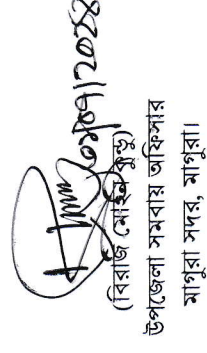 ০১/০৭/২০২৪
(বিরাজ মোহন কুন্ডু)
উপজেলা সমবায় অফিসার
মাগুরা সদর, মাগুরা।